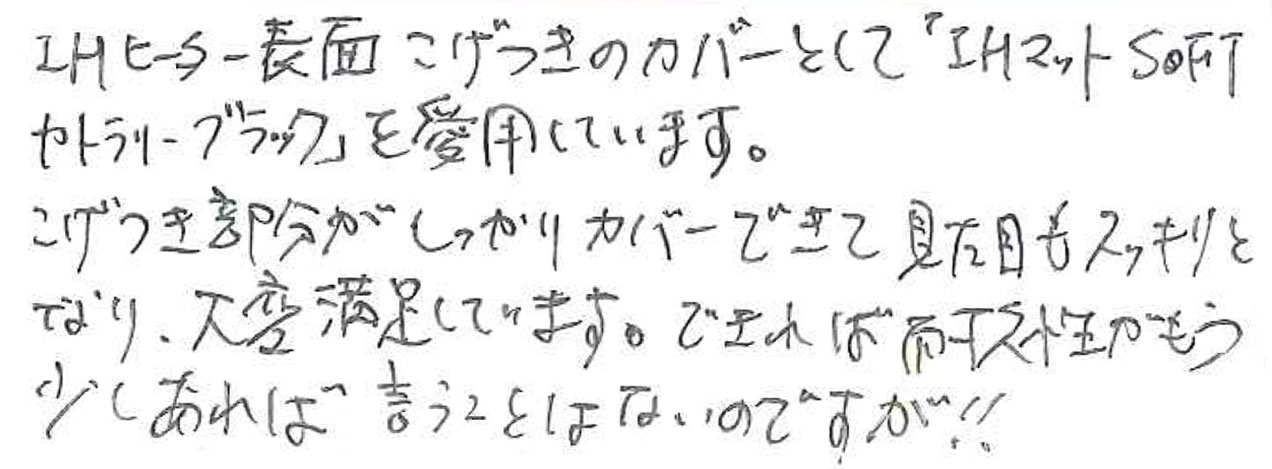 IHヒーター表面こげつきのカバーとして「IHマットSOFT
カトラリーブラック」を愛用しています。
こげつき部分がしっかりカバーできて見た目もスッキリと
なり、大変満足しています。できれば耐久性がもう
少しあれば言うことはないのですが!!